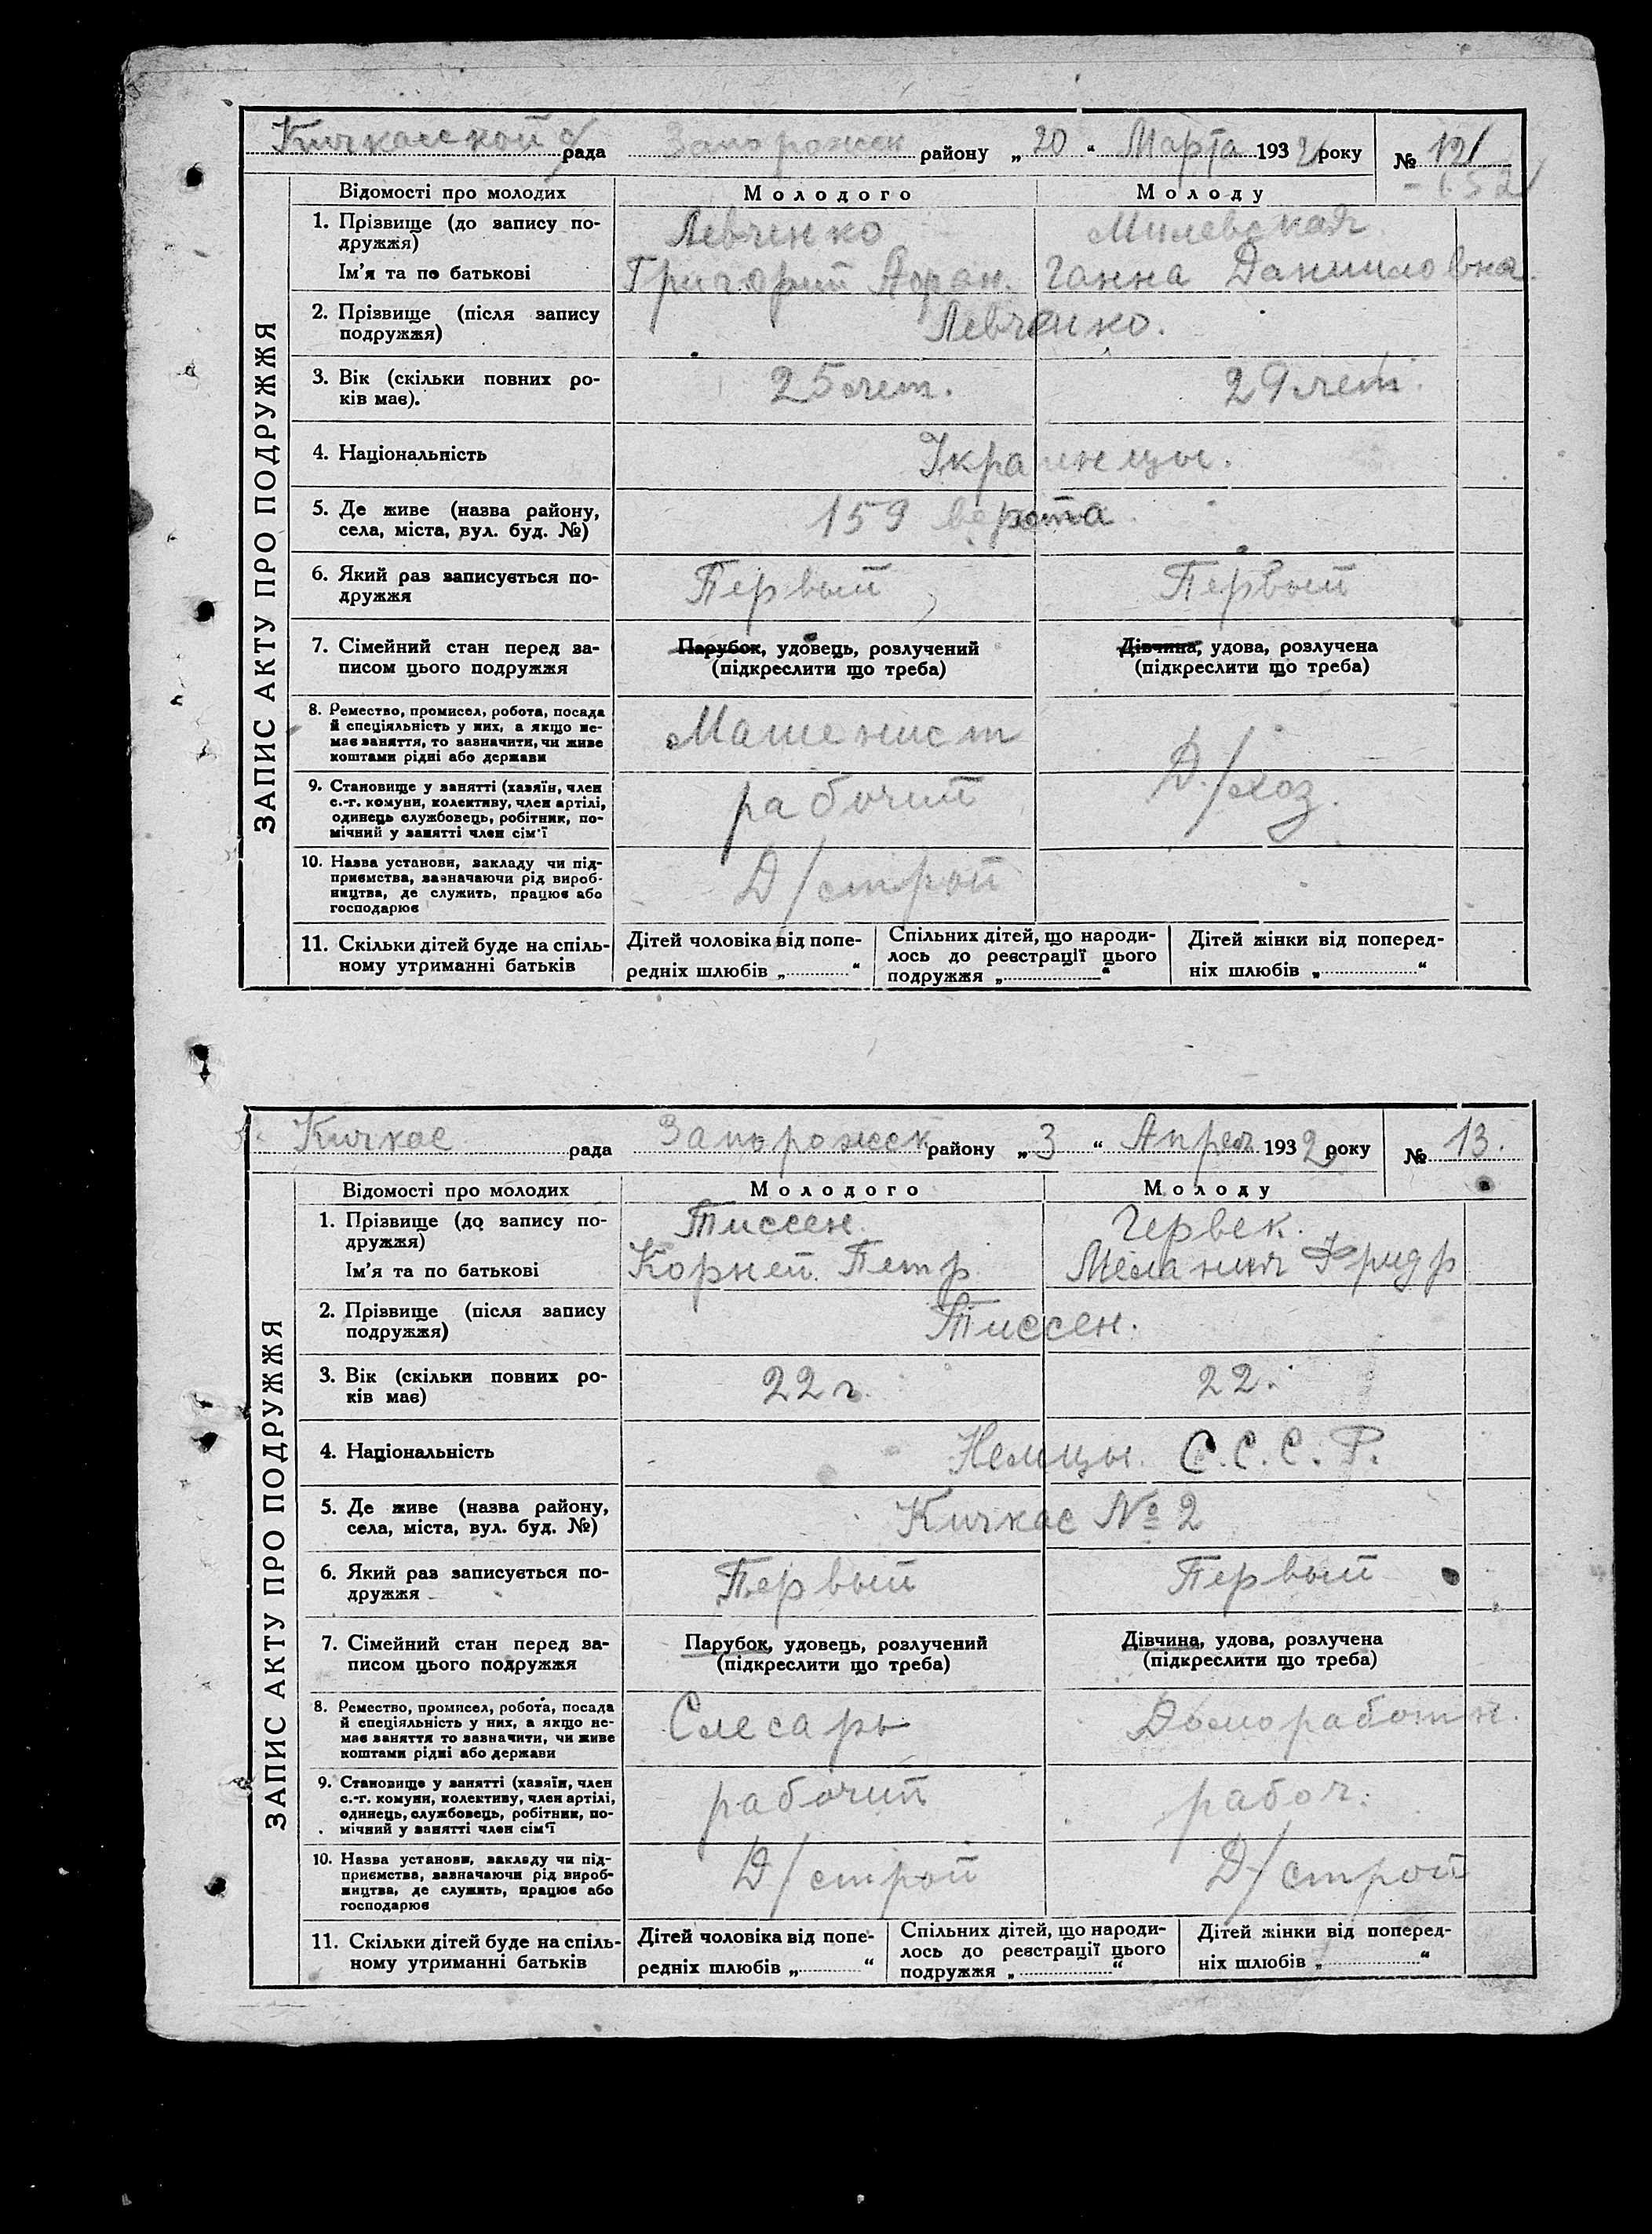 ЗАПИС АКТУ ПРО ПОДРУЖЖЯ
Кичкасской с/рада Запорожск району „20“ Марта 1932 року № 12
Відомості про молодих Молодого Молоду
1. Прізвище (до запису по- Левченко Милевская
дружжя)
Ім'я та по батькові Григорий Ганна Данииловна.
2. Прізвище (після запису Левченко.
подружжя)
3. Вік (скільки повних ро- 25 лет. 29 лет.
ків має).
4. Національність Украинцы.
5. Де живе (назва району, 159 верста
села, міста, вул. буд. №)
6. Який раз записується по- Первый Первый
дружжя
7. Сімейний стан перед за- Парубок, удовець, розлучений Дівчина, удова, розлучена
писом цього подружжя (підкреслити що треба) (підкреслити що треба)
8. Ремество, промисел, робота, посада
й спеціяльність у них, а якщо не- Машенист
має заняття, то зазначити, чи живе
коштами рідні або держави Д./хоз.
9. Становище у занятті (хазяїн, член
с.-г. комуни, колективу, член артілі, рабочий
одинець службовець, робітник, по-
мічний у занятті член сім'ї
10. Назва установи, закладу чи під-
приємства, зазначаючи рід вироб- Д/строй
ництва, де служить, працює або
господарює
11. Скільки дітей буде на спіль- Дітей чоловіка від попе- Спільних дітей, що народи- Дітей жінки від поперед-
ному утриманні батьків редніх шлюбів „ “ лось до реєстрації цього ніх шлюбів „ “
подружжя „ “
ЗАПИС АКТУ ПРО ПОДРУЖЖЯ
Кичкас рада Запорожск району „3“ Апреля 1932 року № 13.
Відомості про молодих Молодого Молоду
1. Прізвище (до запису по- Тиссен. Гервек.
дружжя)
Ім'я та по батькові Корней. Петр Мелания Фридр
2. Прізвище (після запису Тиссен.
подружжя)
3. Вік (скільки повних ро- 22 г. 22.
ків має)
4. Національність Немцы. С.С.С.Р.
5. Де живе (назва району, Кичкас № 2
села, міста, вул. буд. №)
6. Який раз записується по- Первый Первый
дружжя
7. Сімейний стан перед за- Парубок, удовець, розлучений Дівчина, удова, розлучена
писом цього подружжя (підкреслити що треба) (підкреслити що треба)
8. Ремество, промисел, робота, посада
й спеціяльність у них, а якщо не- Слесарь Домоработн.
має заняття то зазначити, чи живе
коштами рідні або держави
9. Становище у занятті (хазяїн, член
с.-г. комуни, колективу, член артілі, рабочий рабоч.
одинець, службовець, робітник, по-
мічний у занятті член сім'ї
10. Назва установи, закладу чи під-
приємства, зазначаючи рід вироб- Д/строй Д/строй
ництва, де служить, працює або
господарює
11. Скільки дітей буде на спіль- Дітей чоловіка від попе- Спільних дітей, що народи- Дітей жінки від поперед-
ному утриманні батьків редніх шлюбів „ “ лось до реєстрації цього ніх шлюбів „ “
подружжя „ “